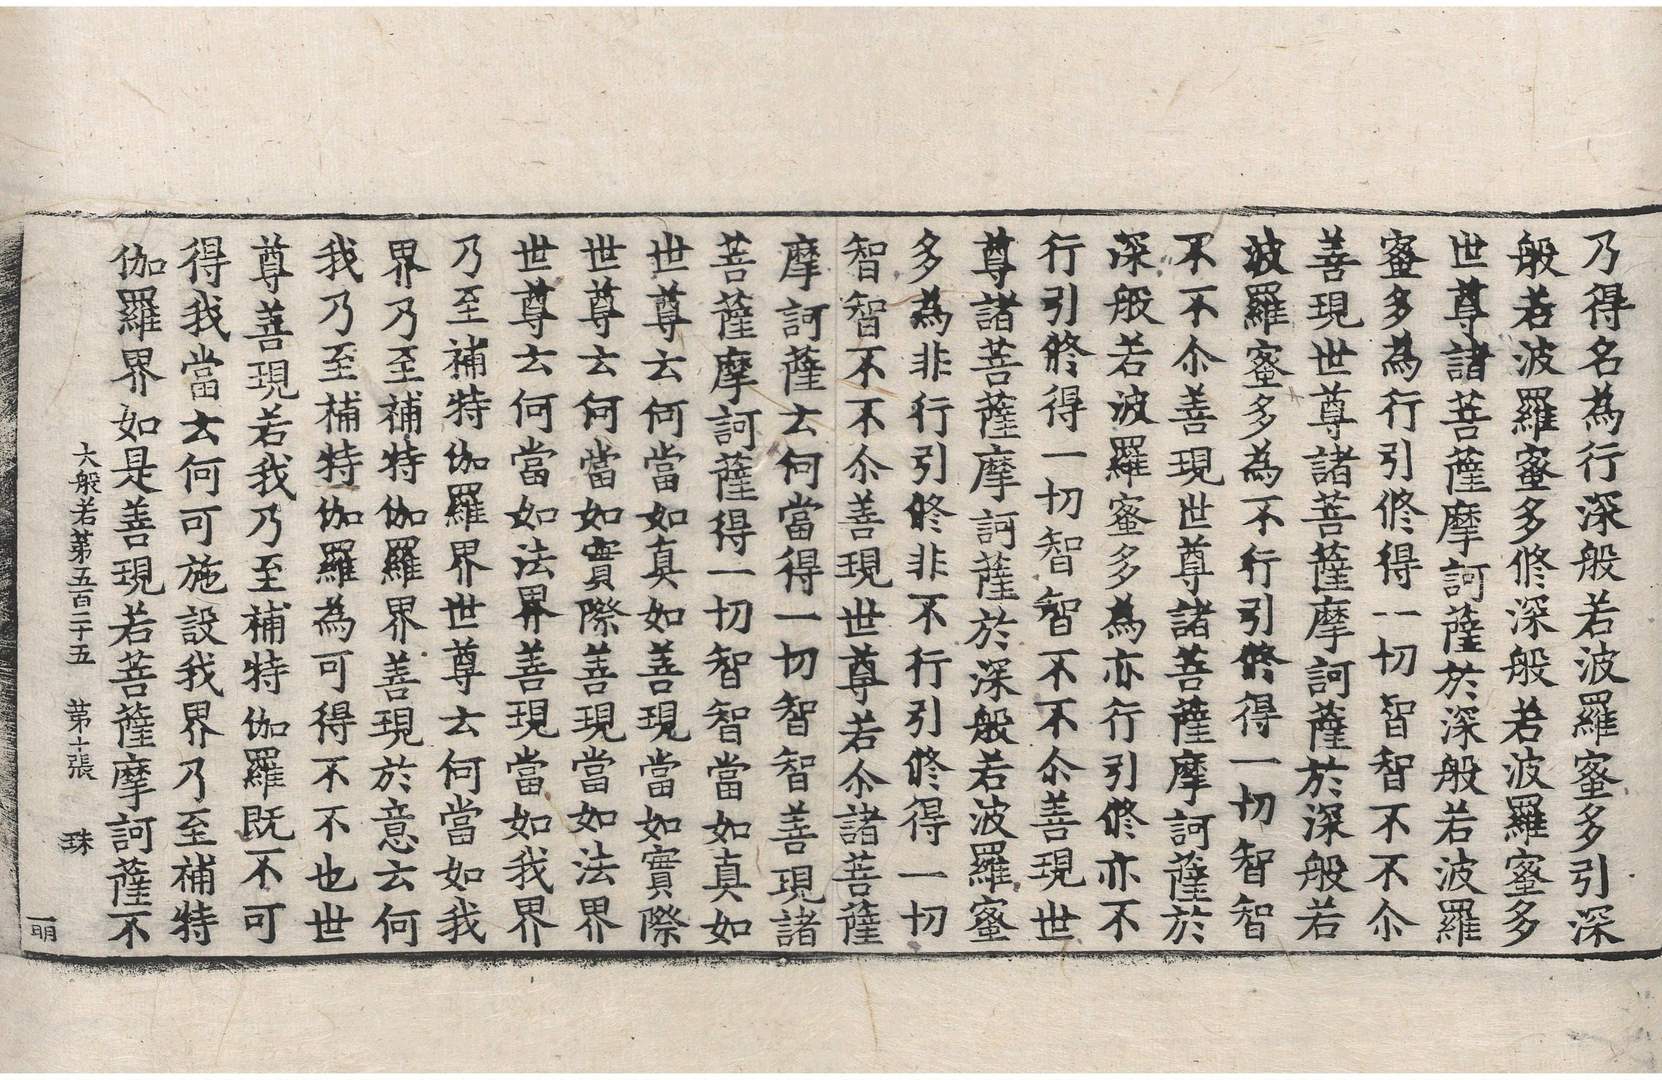 乃得名為行深般若波羅蜜多引深
般若波羅蜜多修深般若波羅蜜多
世尊諸菩薩摩訶薩於深般若波羅
蜜多為行引修得一切智智不不尒
善現世尊諸菩薩摩訶薩於深般若
波羅蜜多為不行引修得一切智智
不不尒善現世尊諸菩薩摩訶薩於
深般若波羅蜜多為亦行引修亦不
行引修得一切智智不不尒善現世
尊諸菩薩摩訶薩於深般若波羅蜜
多為非行引修非不行引修得一切
智智不不尒善現世尊若尒諸菩薩
摩訶薩云何當得一切智智善現諸
菩薩摩訶薩得一切智智當如真如
世尊云何當如真如善現當如實際
世尊云何當如實際善現當如法界
世尊云何當如法界善現當如我界
乃至補特伽羅界世尊云何當如我
界乃至補特伽羅界善現於意云何
我乃至補特伽羅為可得不不也世
尊善現若我乃至補特伽羅既不可
得我當云何可施設我界乃至補特
伽羅界如是善現若菩薩摩訶薩不
大般若第五百二十五 第十張 珠
一明